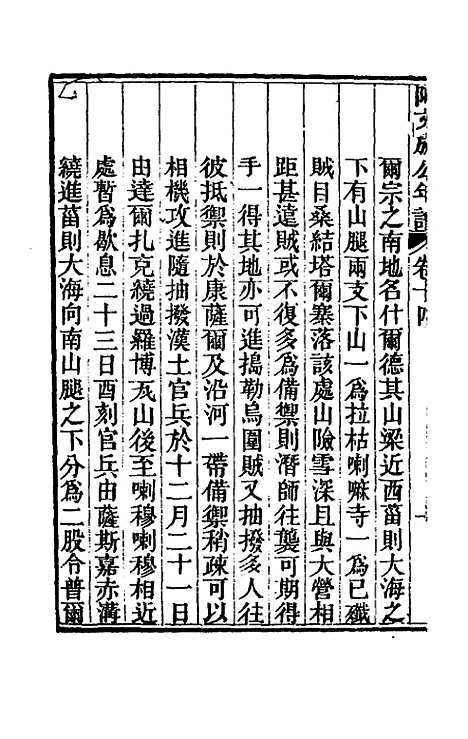 阿文成公年譜 卷十四
爾宗之南地名什爾德其山梁近西菑則大海之
下有山腿兩支下山一為拉枯喇嘛寺一為已殲
賊目桑結塔爾寨落該處山險雪深且與大營相
距甚遠賊或不復多為備禦則潛師往襲可期得
手一得其地亦可進搗勒烏圍賊又抽撥多人往
彼抵禦則於康薩爾及沿河一帶備禦稍疎可以
相機攻進隨抽撥漢土官兵於十二月二十一日
由達爾扎克繞過羅博瓦山後至喇穆喇穆相近
處暫為歇息二十三日酉刻官兵由薩斯嘉赤溝
繞進菑則大海向南山腿之下分為二股令普爾